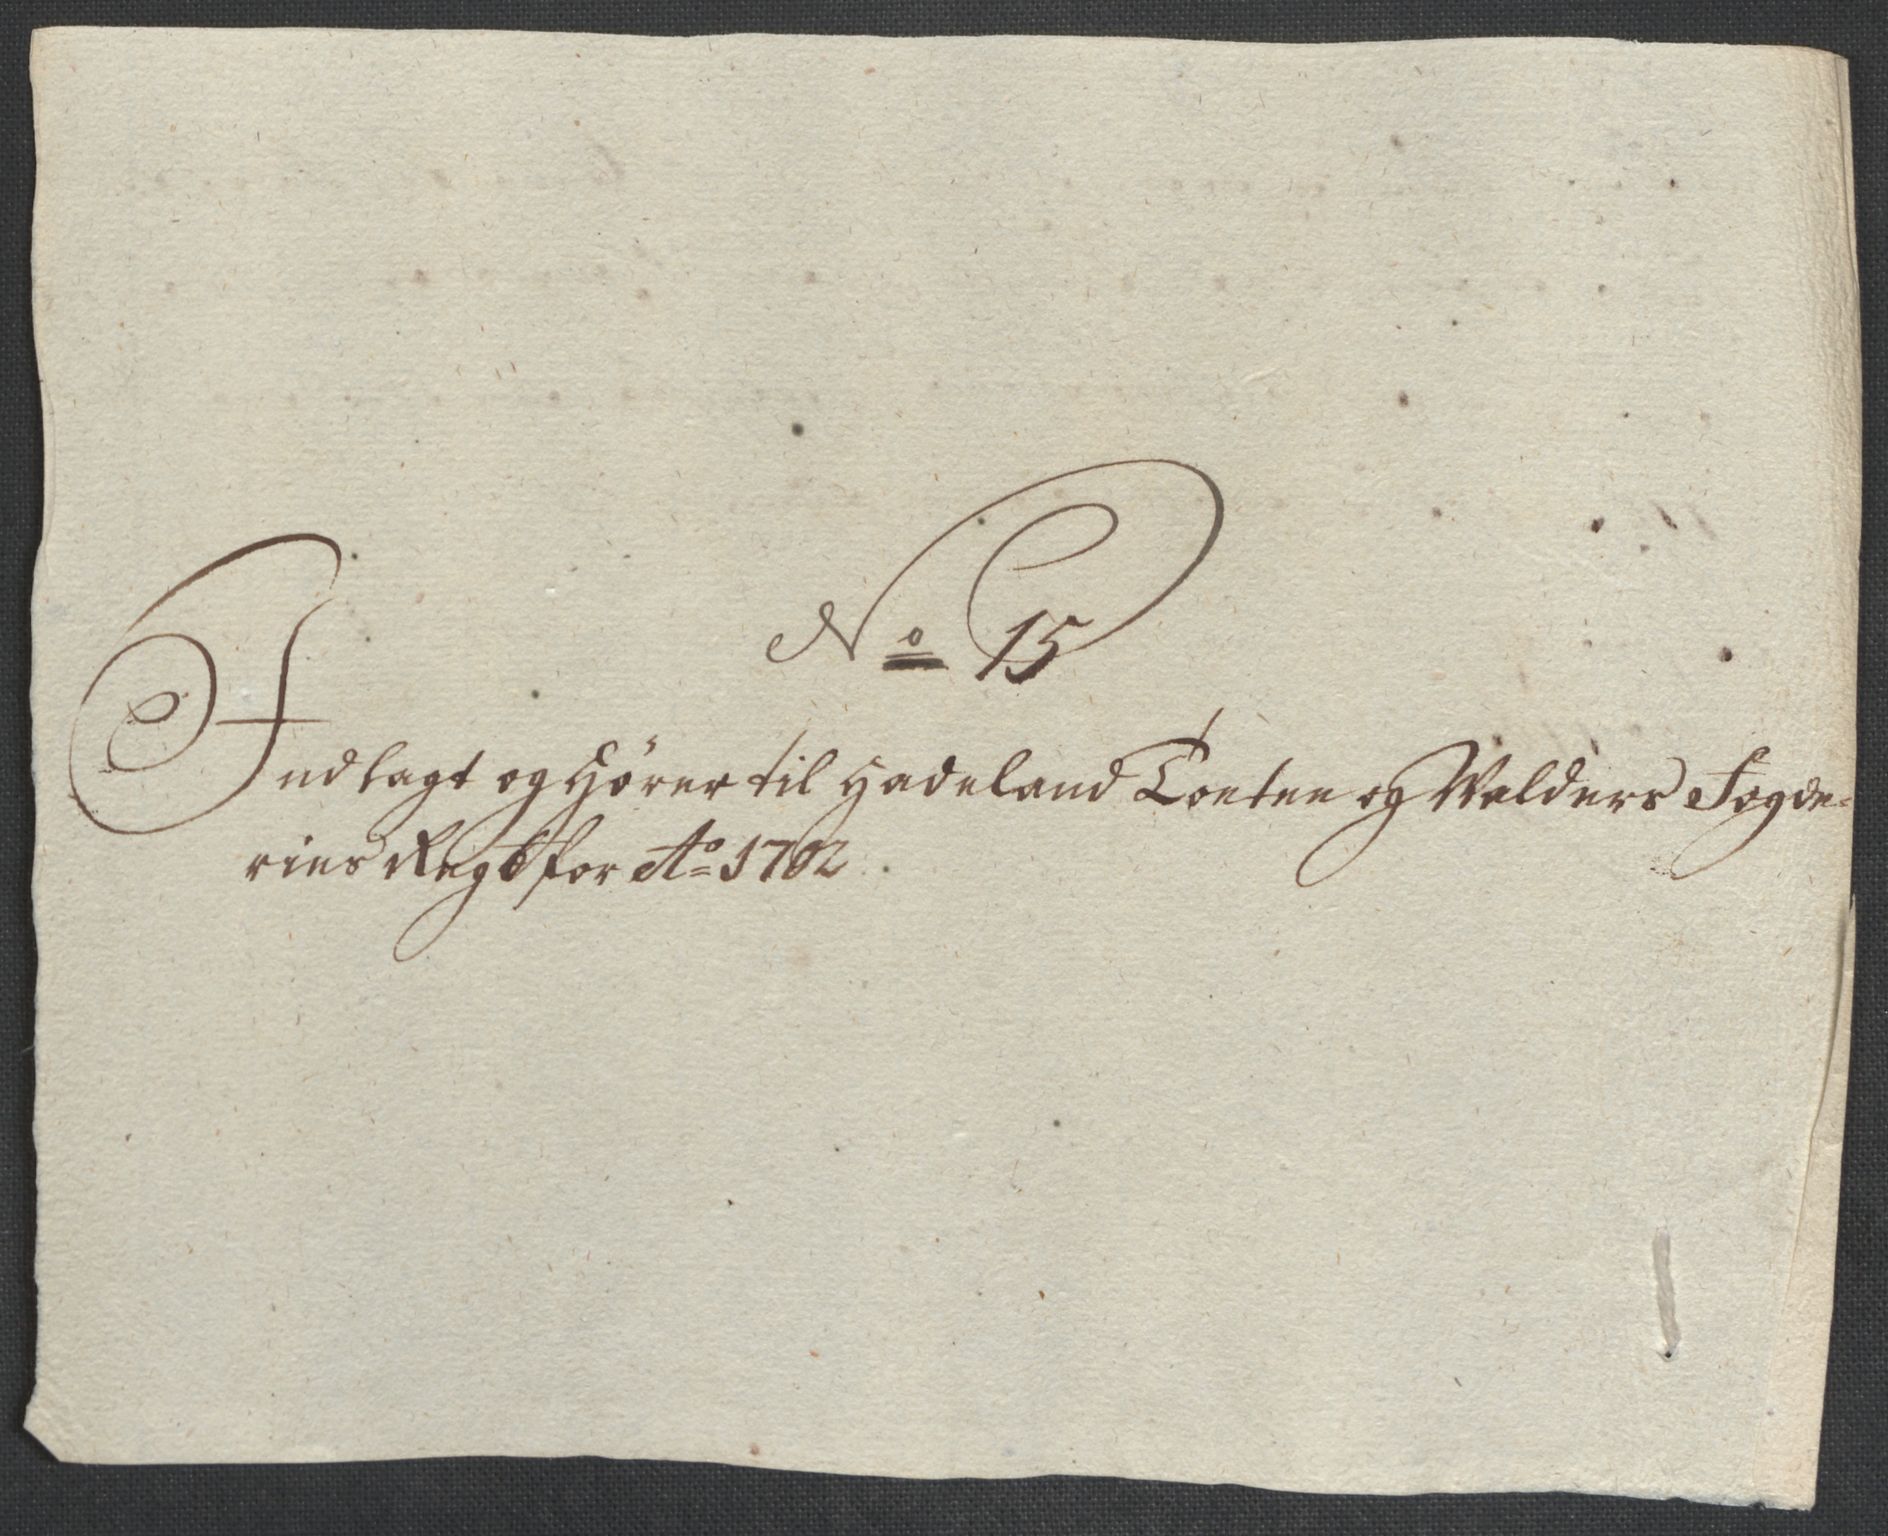 No 15
Indlagt og Hører til Hadeland Toeten og Walders Fogde=
ries Regsk for Ao 1702